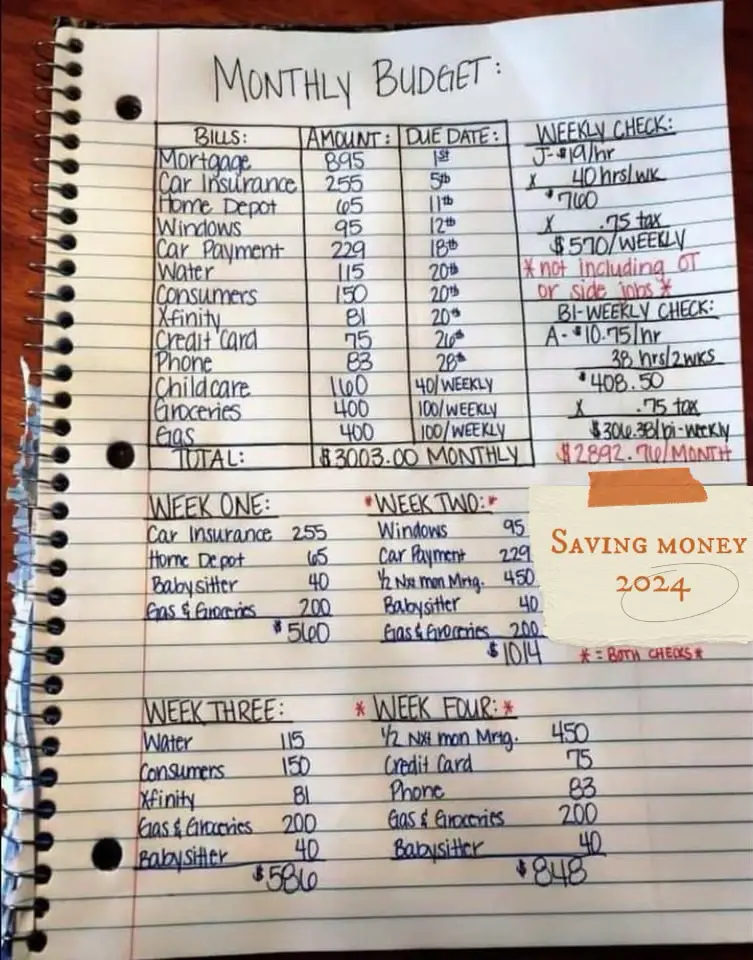 MONTHLY BUDGET:
BILLS: AMOUNT: DUE DATE:
Mortgage 895 1st
Car Insurance 255 5th
Home Depot 65 11th
Windows 95 12th
Car Payment 229 18th
Water 115 20th
Consumers 150 20th
Xfinity 81 20th
Credit Card 75 26th
Phone 83 28th
Childcare 160 40/WEEKLY
Groceries 400 100/WEEKLY
Gas 400 100/WEEKLY
TOTAL: $3003.00 MONTHLY
WEEKLY CHECK:
J-$19/hr
X 40 hrs/wk
$760
X .75 tax
$570/WEEKLY
*not including OT
or side jobs*
BI-WEEKLY CHECK:
A-$10.75/hr
38 hrs/2wks
$408.50
X .75 tax
$306.38/bi-weekly
$2892.76/MONTH
WEEK ONE:
Car Insurance 255
Home Depot 65
Babysitter 40
Gas & Groceries 200
$560
*WEEK TWO:*
Windows 95
Car Payment 229
1/2 Nxt mon Mrtg. 450
Babysitter 40
Gas & Groceries 200
$1014
SAVING MONEY
2024
* = BOTH CHECKS*
WEEK THREE:
Water 115
Consumers 150
Xfinity 81
Gas & Groceries 200
Babysitter 40
$586
* WEEK FOUR:*
1/2 Nxt mon Mrtg. 450
Credit Card 75
Phone 83
Gas & Groceries 200
Babysitter 40
$848